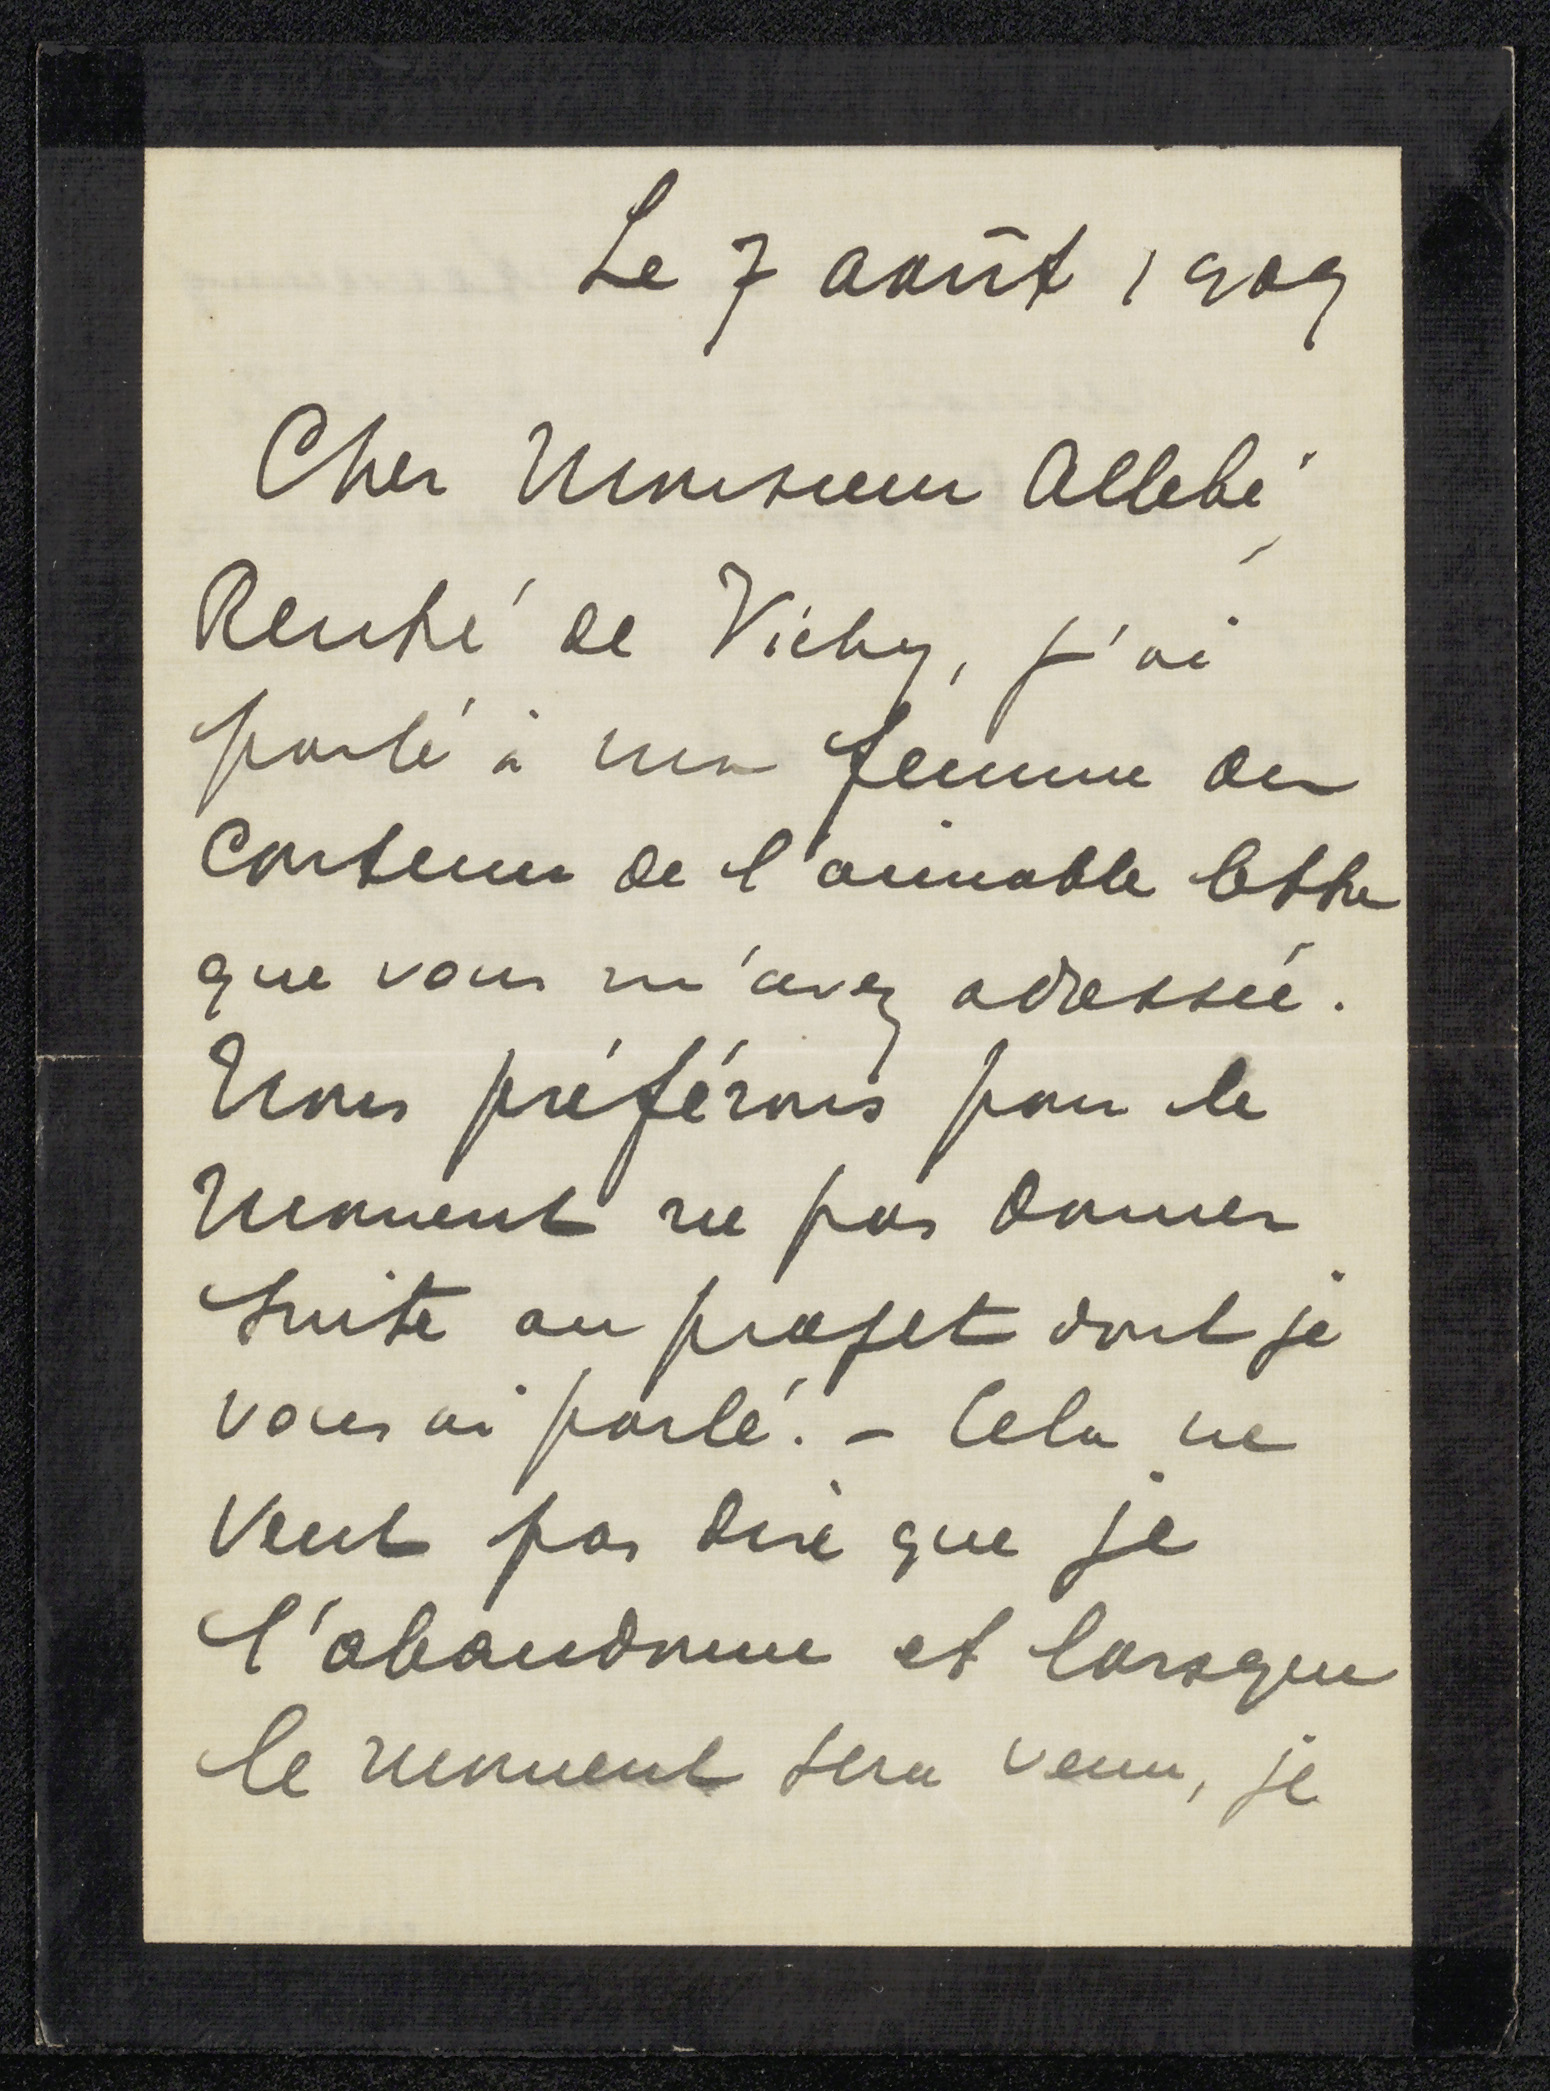 Le 7 août 1909
Cher Monsieur Allebé,
Rentré de Vichy, j'ai
parlé à ma femme du
contenu de l'aimable lettre
que vous m'avez adressée.
Nous préférons pour le
moment ne pas donner
suite au projet dont je
vous ai parlé. - Cela ne
veut pas dire que je
l'abandonne et lorsque
le moment sera venu, je